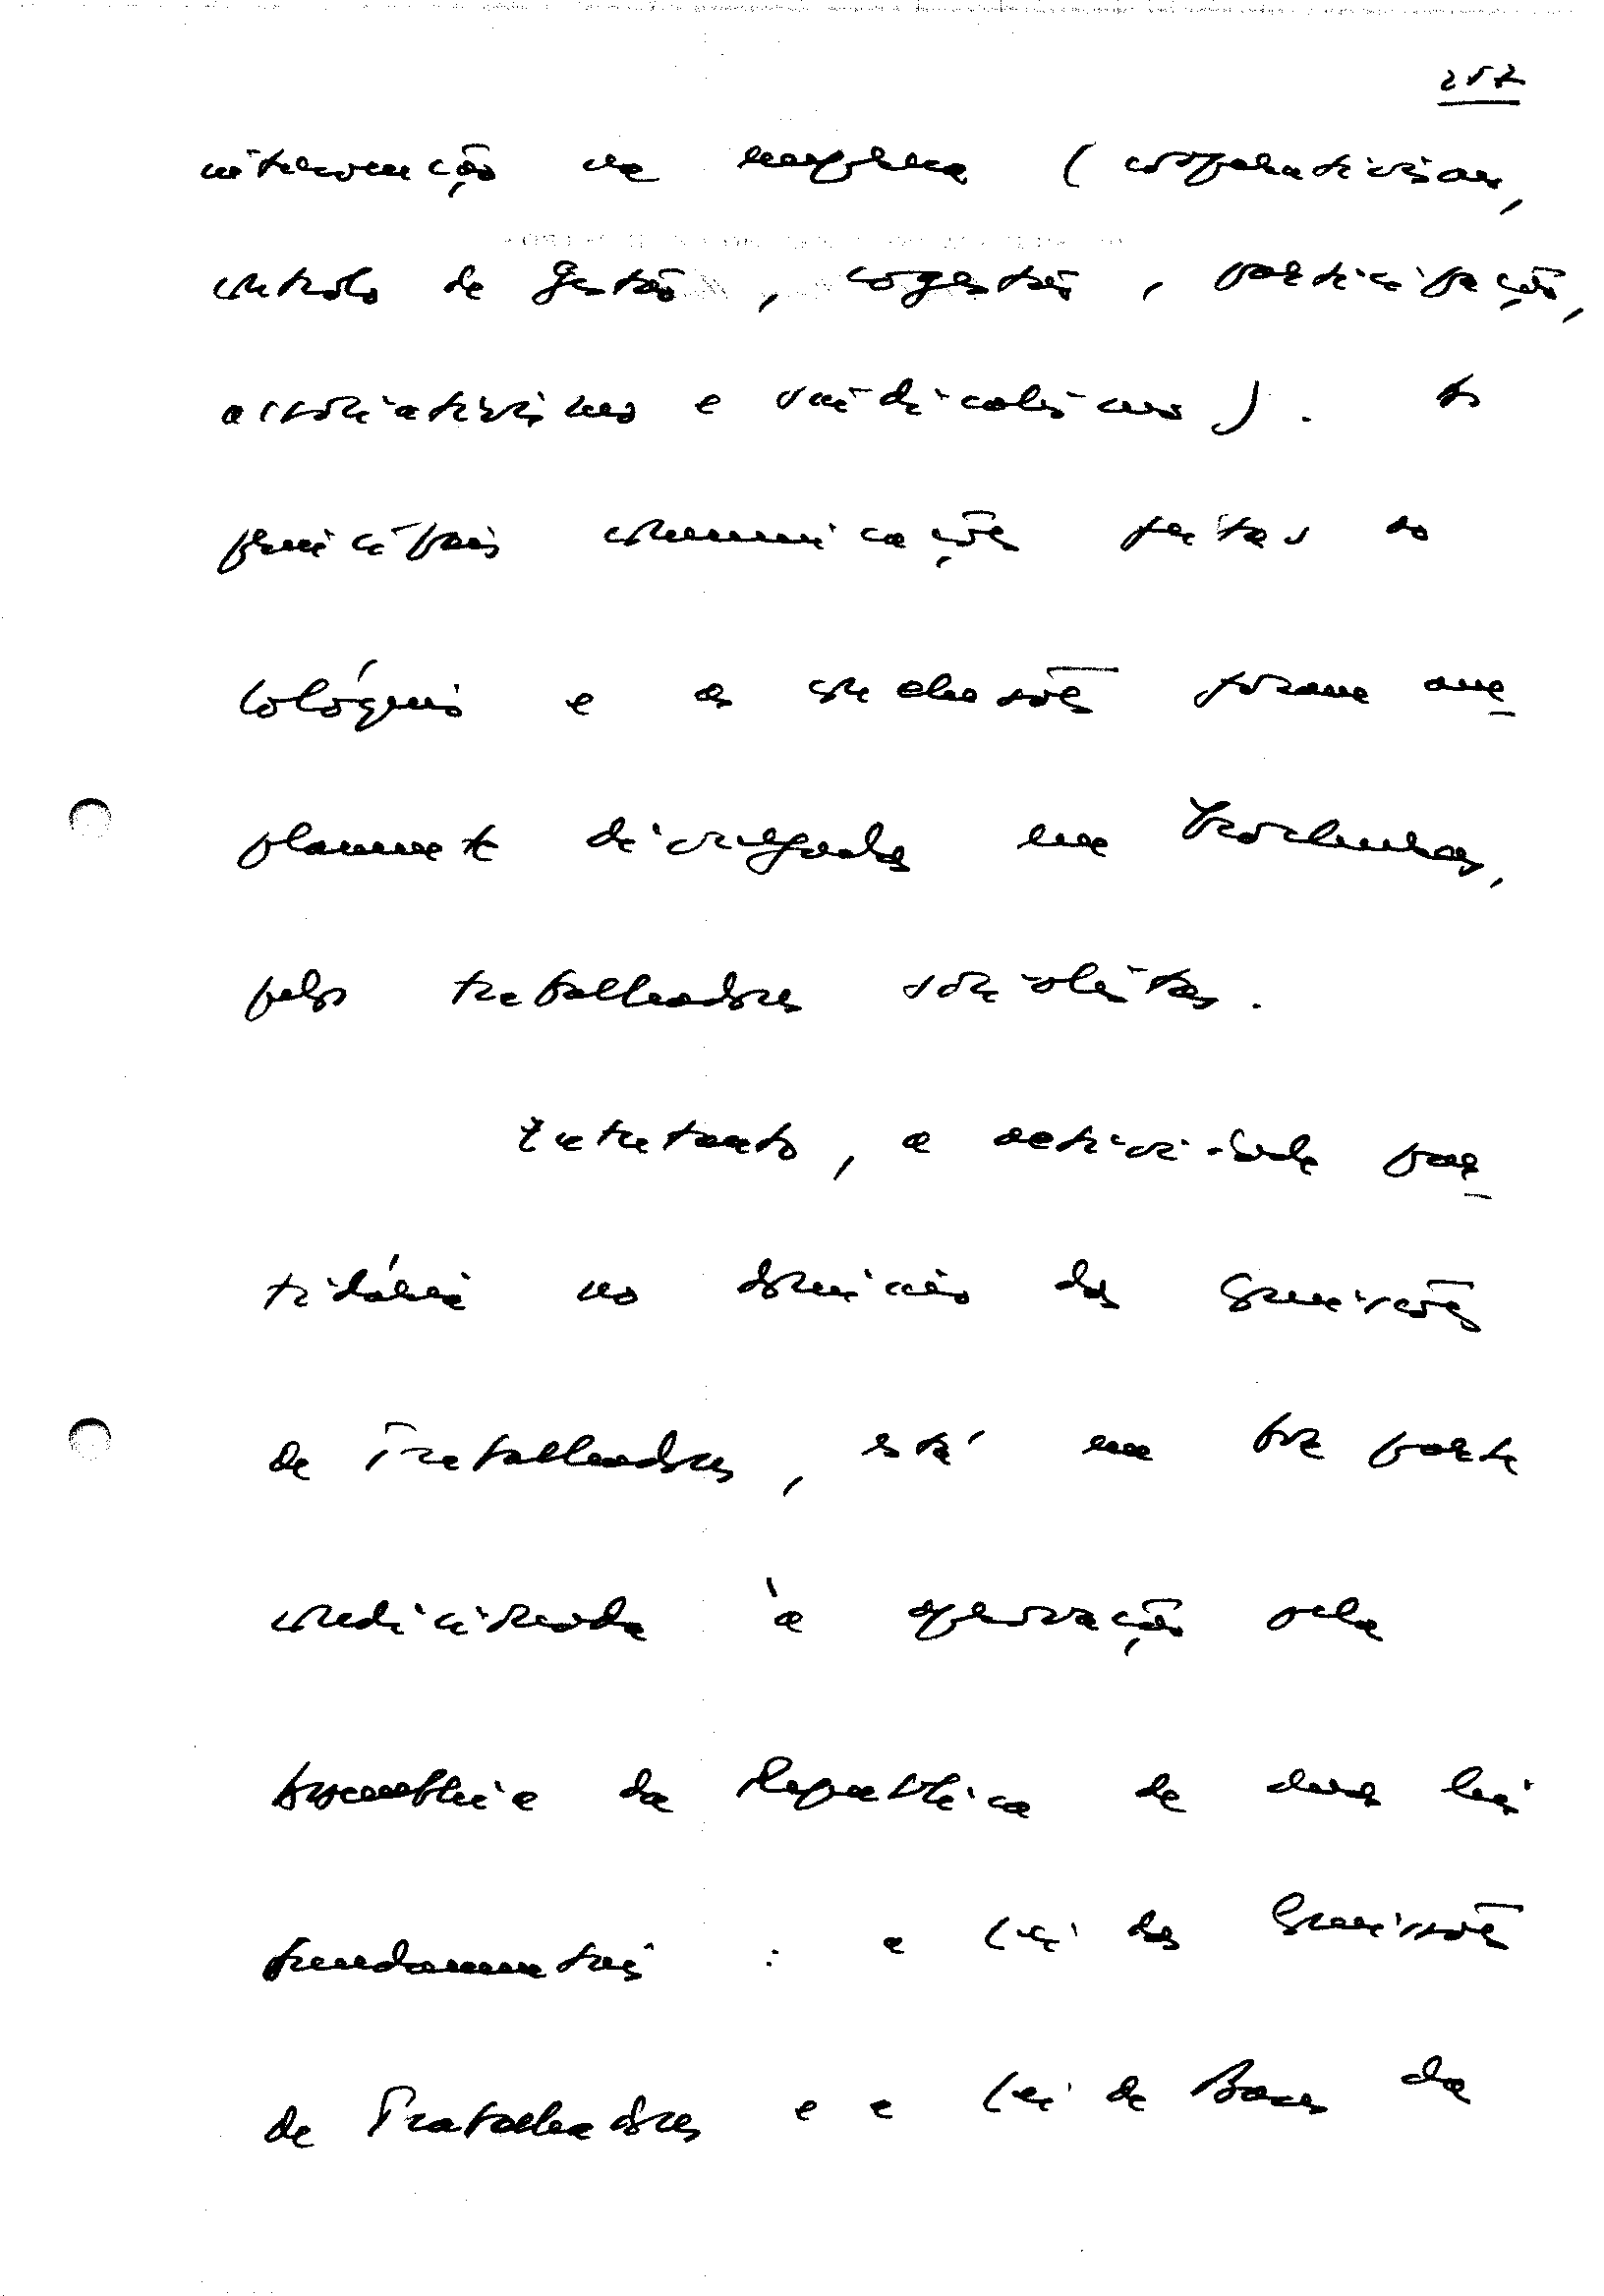 257
intervenção na empresa (cooperativismo,
controlo de gestão, cogestão, participação,
associativismo e sindicalismo). As
principais comunicações feitas ao
Colóquio e as conclusões foram am_
plamente divulgadas em brochuras,
pelos trabalhadores socialistas.
Entretanto, a actividade par_
tidária no domínio das Comissões
de Trabalhadores, está em boa parte
condicionada à aprovação pela
Assembleia da República de duas leis
fundamentais : a Lei das Comissões
de Trabalhadores e a Lei de Bases da